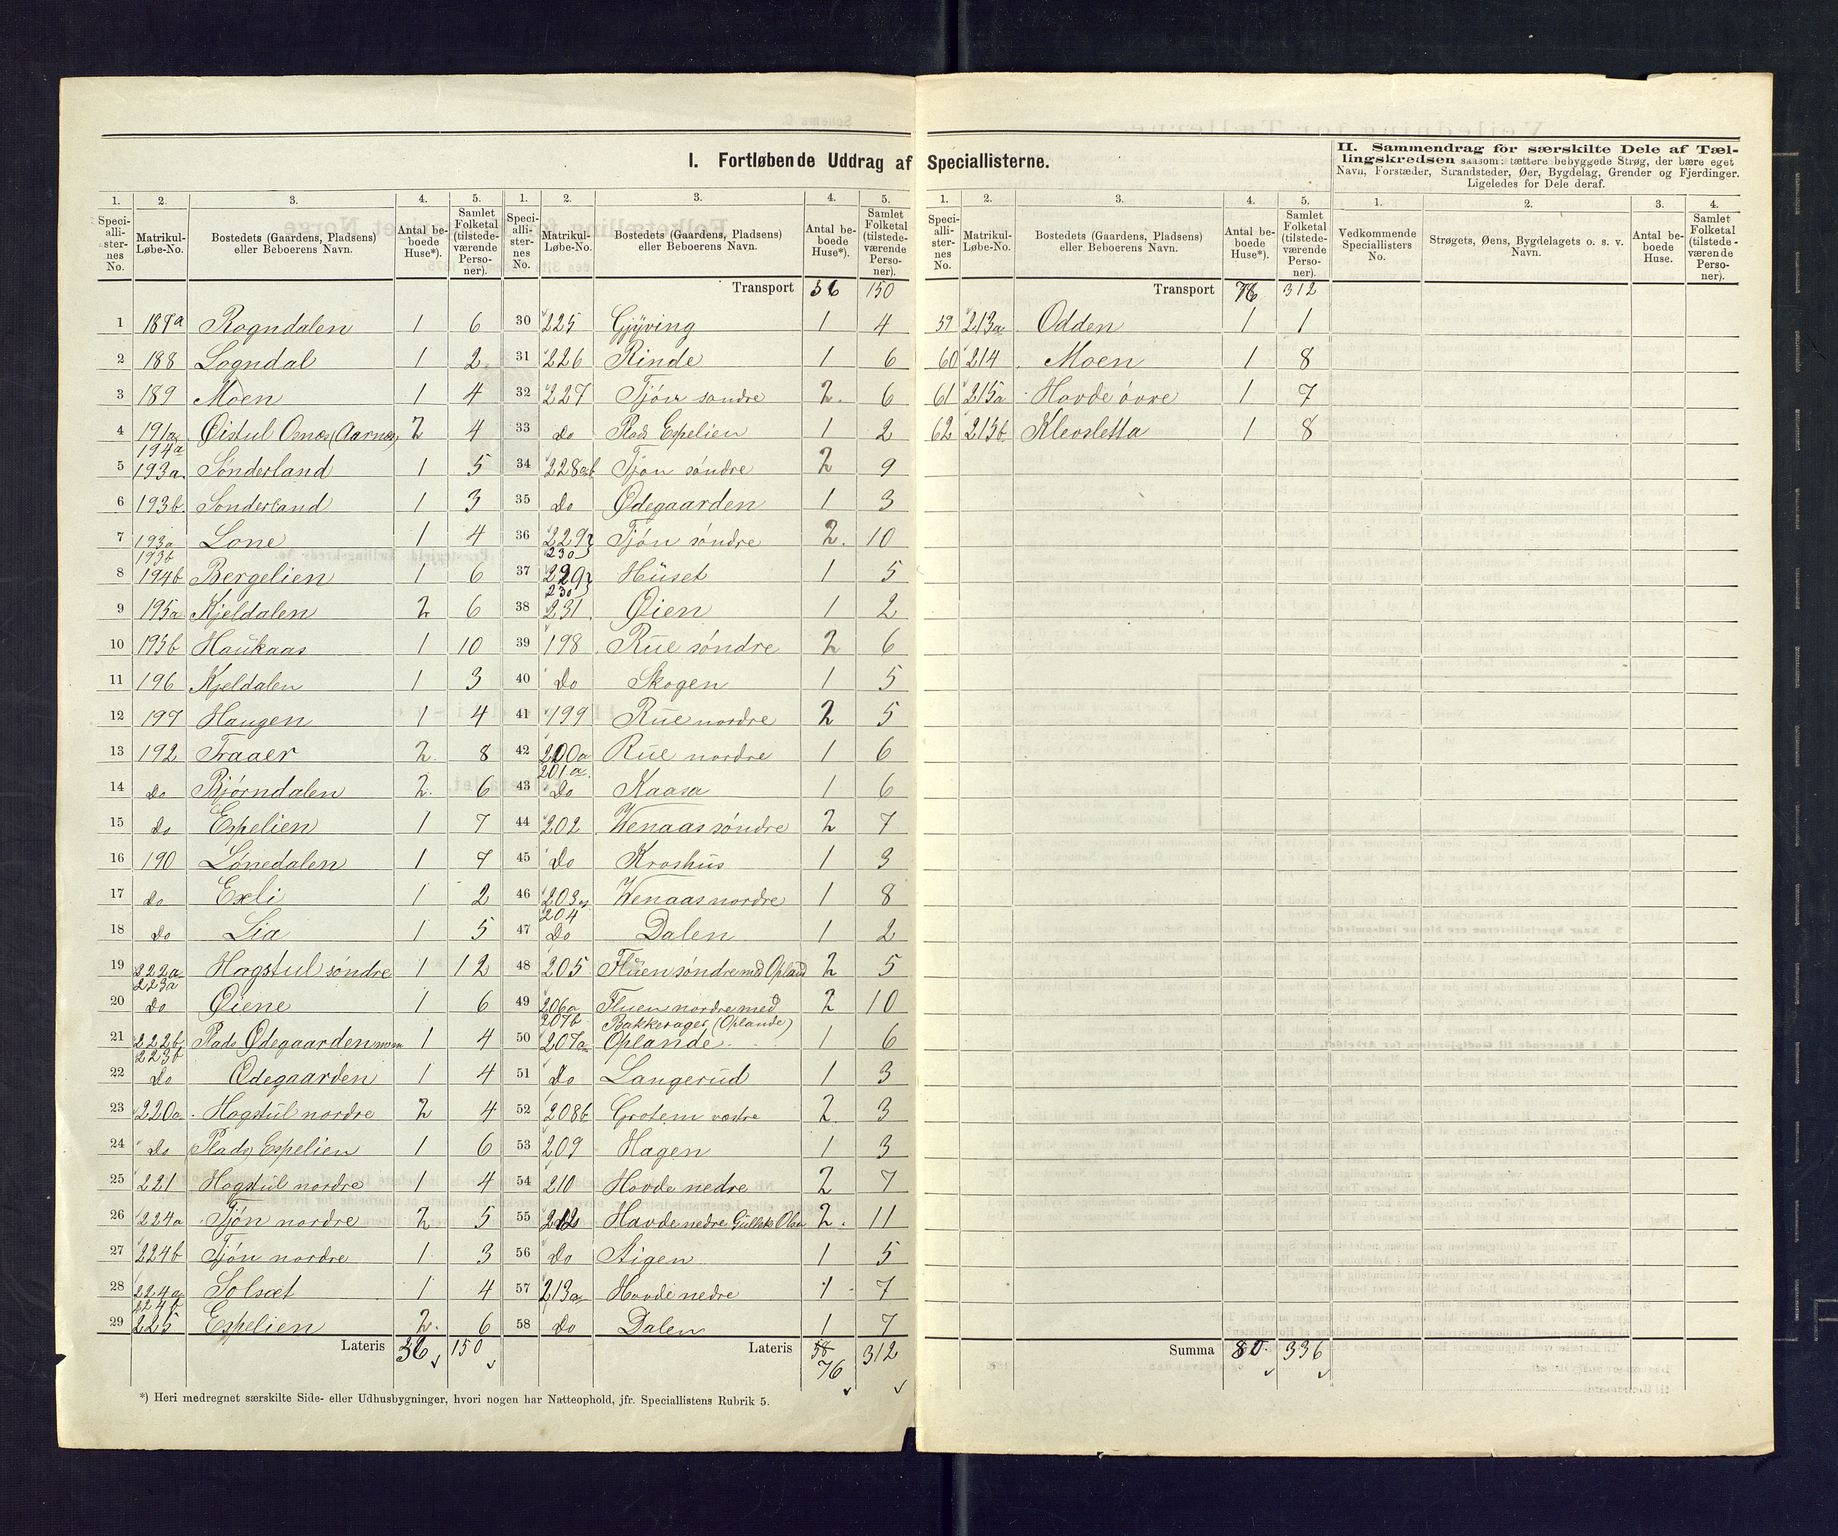 I. Fortløbende Uddrag af Speciallisterne.
II. Sammendrag for særskilte Dele af Tæl-
lingskredsen saasom: tættere bebyggede Strøg, der bære eget
Navn, Forstæder, Strandsteder, Øer, Bygdelag, Grender og Fjerdinger.
Ligeledes for Dele deraf.
1. 2. 3. 4. 5.
Speciallisternes No. Matrikul-Løbe-No. Bostedets (Gaardens, Pladsens) eller Beboerens Navn. Antal beboede Huse*). Samlet Folketal (tilstedeværende Personer).
1 187a Rogndalen 1 6
2 188 Logndal 1 2
3 189 Moen 1 4
4 191a Øistul Osnæs (Aarnæs) 2 4
194a
5 193a Sönderland 1 5
6 193b Sonderland 1 3
7 193a Lone 1 4
193b
8 194b Bergelien 1 6
9 195a Kjeldalen 2 6
10 195b Haukaas 1 10
11 196 Kjeldalen 1 3
12 197 Haugen 1 4
13 192 Traaer 2 8
14 Do Bjørndalen 2 6
15 Do Espelien 1 7
16 190 Lønedalen 1 7
17 Do Exli 1 2
18 Do Lia 1 5
19 222a Hogstul søndre 1 12
223a
20 Do Øiene 1 6
21 222b Plads Ødegaarden 1 4
223b
22 Do Ødegaarden 1 4
23 220a Hogstul nordre 2 4
24 Do Plads Espelien 1 6
25 221 Hogstul nordre 1 4
26 224a Tjón nordre 2 5
27 224b Tjón nordre 1 3
28 224a Solsæt 1 4
224b
29 225 Espelien 2 6
Lateris 36 150
1. 2. 3. 4. 5.
Speciallisternes No. Matrikul-Løbe-No. Bostedets (Gaardens, Pladsens) eller Beboerens Navn. Antal beboede Huse*). Samlet Folketal (tilstedeværende Personer).
Transport 36 150
30 225 Gjÿving 1 4
31 226 Rinde 1 6
32 227 Tjón sondre 2 6
33 Do Plads Espelien 1 2
34 228ab Tjón søndre 2 9
35 Do Ødegaarden 1 3
36 229 Tjón søndre 2 10
230
37 229 Húset 1 5
230
38 231 Øien 1 2
39 198 Rue søndre 2 6
40 Do Skogen 1 5
41 199 Rue nordre 2 5
42 200a Rue nordre 1 6
201a
43 Do Kaasa 1 6
44 202 Wenaas søndre 2 7
45 Do Kroshus 1 3
46 203 Wenaas nordre 1 8
204
47 Do Dalen 1 2
48 205 Fluen søndre med Opland 2 5
49 206a Fluen nordre med 2 10
207b Bakkerager (Oplande)
50 207a Oplande 1 6
51 Do Langerud 1 3
52 208b Grotem vestre 2 3
53 209 Hagen 1 3
54 210 Hovde nedre 2 7
55 212 Hovde nedre Gullek Olsen 2 11
56 Do Stigen 1 5
57 213a Hovde nedre 1 7
58 Do Dalen 1 7
Lateris 58 312
76
1. 2. 3. 4. 5.
Speciallisternes No. Matrikul-Løbe-No. Bostedets (Gaardens, Pladsens) eller Beboerens Navn. Antal beboede Huse*). Samlet Folketal (tilstedeværende Personer).
Transport 76 312
59 213a Odden 1 1
60 214 Moen 1 8
61 215a Hovde øvre 1 7
62 213b Klevsletta 1 8
Summa 80 336
1. 2. 3. 4.
Vedkommende Speciallisters No. Strøgets, Øens, Bygdelagets o. s. v. Navn. Antal beboede Huse. Samlet Folketal (tilstedeværende Personer).
*) Heri medregnet særskilte Side- eller Udhusbygninger, hvori nogen har Natteophold, jfr. Speciallistens Rubrik 5.